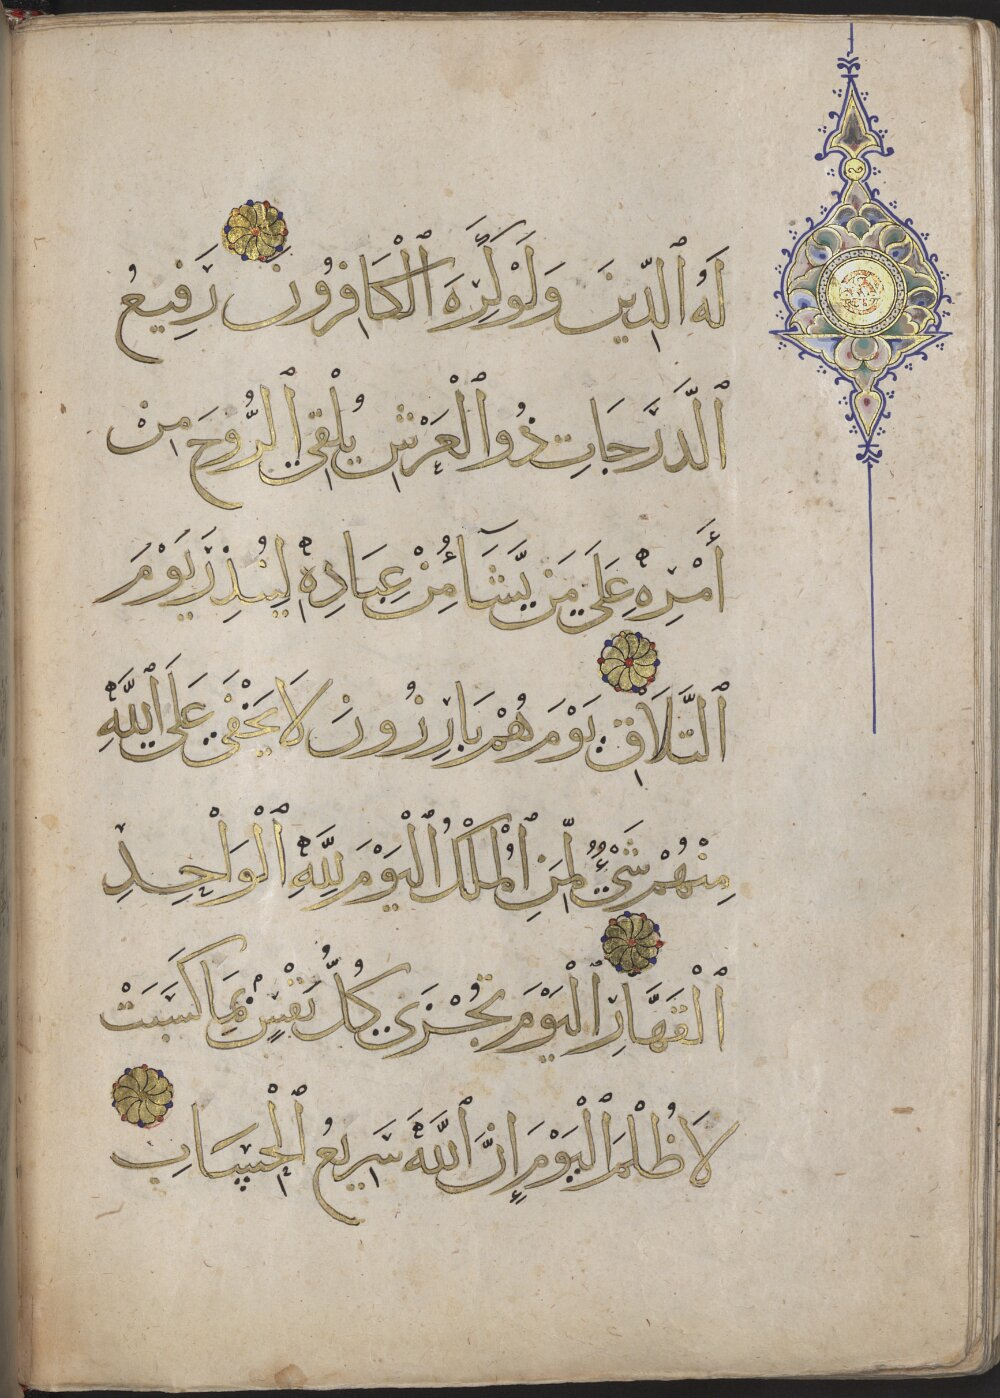 لَهُ ٱلدِّينَ وَلَوْ كَرِهَ ٱلْكَافِرُونَ رَفِيعُ
ٱلدَّرَجَاتِ ذُو ٱلْعَرْشِ يُلْقِي ٱلرُّوحَ مِنْ
أَمْرِهِ عَلَى مَن يَّشَآءُ مِنْ عِبَادِهِ لِيُنذِرَ يَوْمَ
ٱلتَّلَاقِ يَوْمَ هُمْ بَارِزُونَ لَا يَخْفَى عَلَى ٱللَّهِ
مِنْهُمْ شَيْءٌ لِّمَنِ ٱلْمُلْكُ ٱلْيَوْمَ لِلَّهِ ٱلْوَاحِدِ
ٱلْقَهَّارِ ٱلْيَوْمَ تُجْزَى كُلُّ نَفْسٍ بِمَا كَسَبَتْ
لَا ظُلْمَ ٱلْيَوْمَ إِنَّ ٱللَّهَ سَرِيعُ ٱلْحِسَابِ